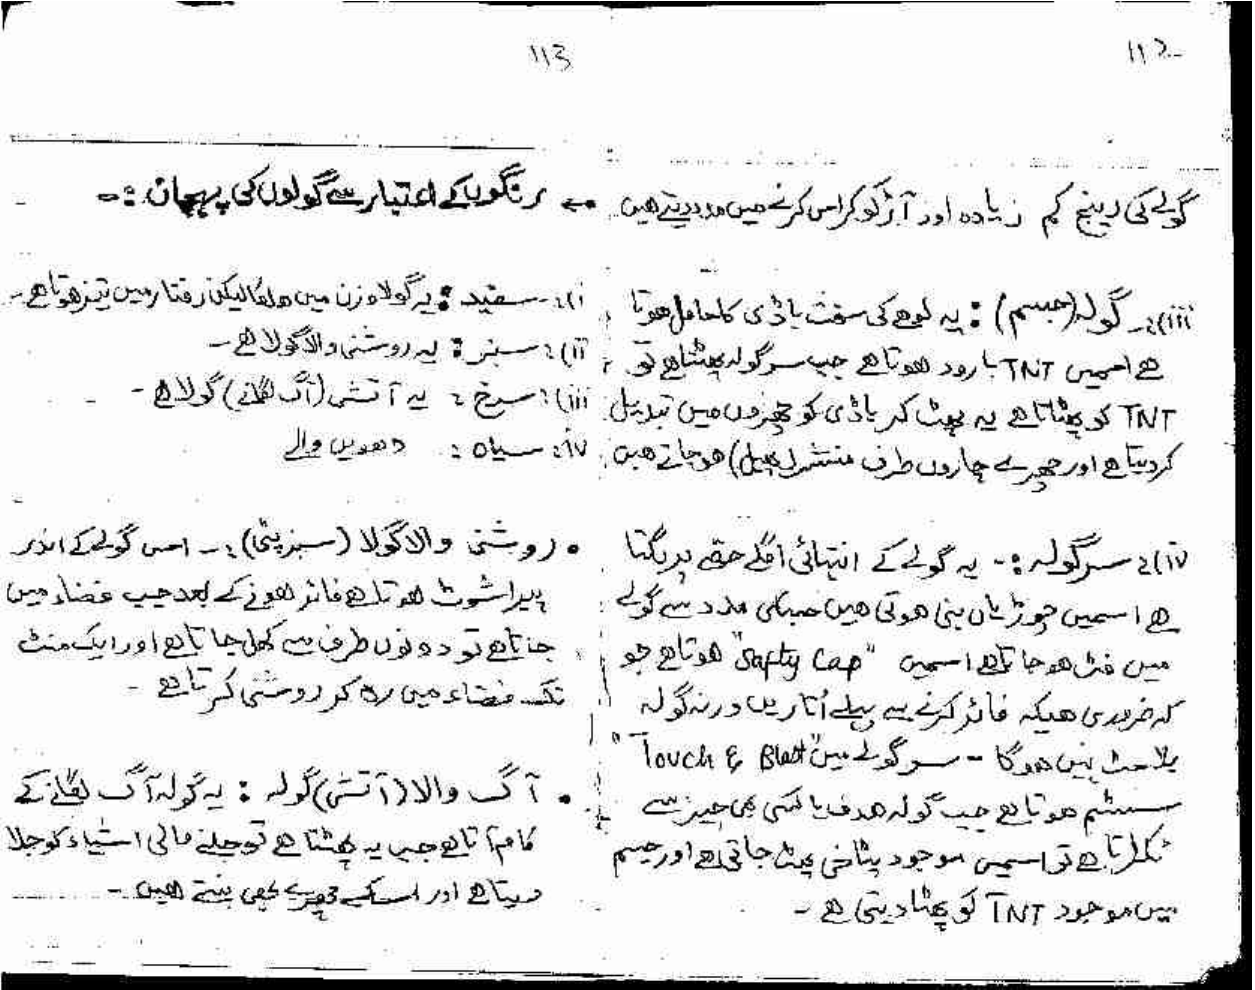 112
گولے کی رینج کم زیادہ اور آڑ کو کراس کرنے میں مدد دیتے ھیں
iii):۔ گولہ (جسم) : یہ لوھے کی سخت باڈی کا حامل ھوتا
ھے اسمیں TNT بارود ھوتا ھے جب سر گولہ پھٹتا ھے تو
TNT کو پھٹاتا ھے یہ پھٹ کر باڈی کو چھروں میں تبدیل
کر دیتا ھے اور چھرے چاروں طرف منتشر (پھیل) ھو جاتے ھیں
iv): سر گولہ :۔ یہ گولے کے انتہائی اگلے حصے پر لگتا
ھے اسمیں چوڑیاں بنی ھوتی ھیں جسکی مدد سے گولے
میں فٹ ھو جاتا ھے اسمیں "Safty Cap" ھوتا ھے جو
کہ ضروری ھیکہ فائر کرنے سے پہلے اُتاریں ورنہ گولہ
بلاسٹ نہیں ھوگا ۔ سر گولے میں "Touch & Blast"
سسٹم ھوتا ھے جب گولہ ھدف یا کسی بھی چیز سے
ٹکراتا ھے تو اسمیں موجود پٹاخی پھٹ جاتی ھے اور جسم
میں موجود TNT کو پھٹا دیتی ھے ۔
113
رنگوں کے اعتبار سے گولوں کی پہچان :۔
i):۔ سفید : یہ گولا وزن میں ھلکا لیکن رفتار میں تیز ھوتا ھے ۔
ii): سبز : یہ روشنی والا گولا ھے ۔
iii): سرخ : یہ آتشی (آگ لگانے) گولا ھے ۔
iv: سیاہ : دھویں والے
• روشنی والا گولا (سبز پٹی) :۔ اس گولے کے اندر
پیراشوٹ ھوتا ھے فائر ھونے کے بعد جب فضاء میں
جاتا ھے تو دونوں طرف سے کھل جاتا ھے اور ایک منٹ
تک فضاء میں رہ کر روشنی کرتا ھے ۔
• آگ والا (آتشی) گولہ : یہ گولہ آگ لگانے کے
کام آتا ھے جب یہ پھٹتا ھے تو جلنے والی اشیاء کو جلا
دیتا ھے اور اسکے چھرے بھی بنتے ھیں ۔